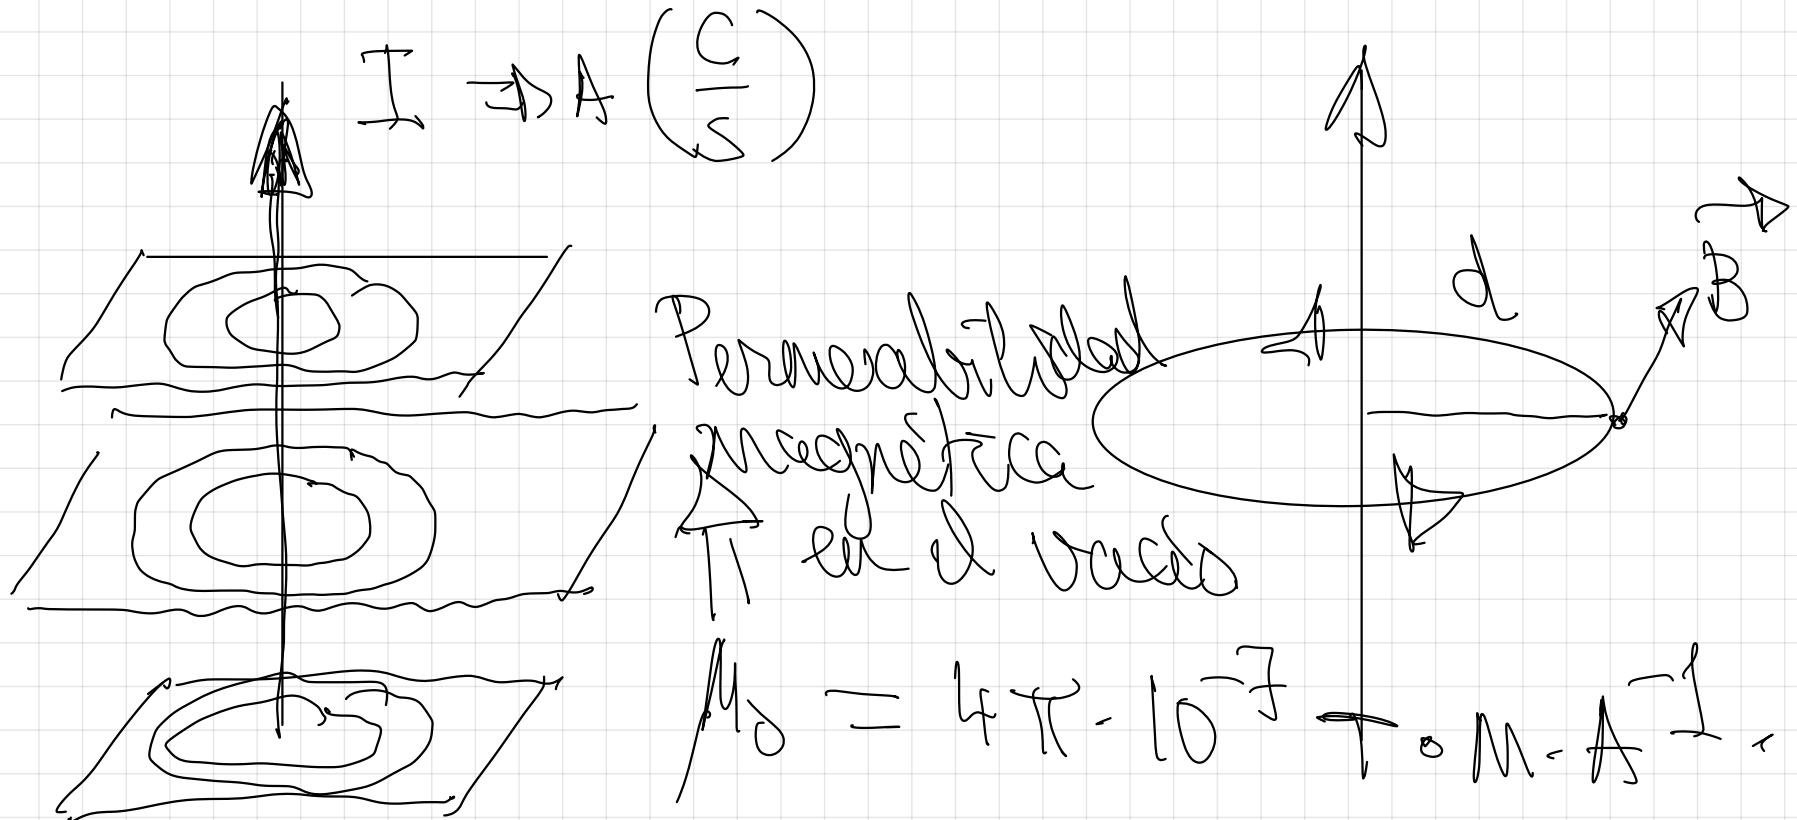 I ⇒ A (C/S)
d
B⃗
Permeabilidad
magnética
en el vacío
μ₀ = 4π · 10⁻⁷ T · m · A⁻¹ .